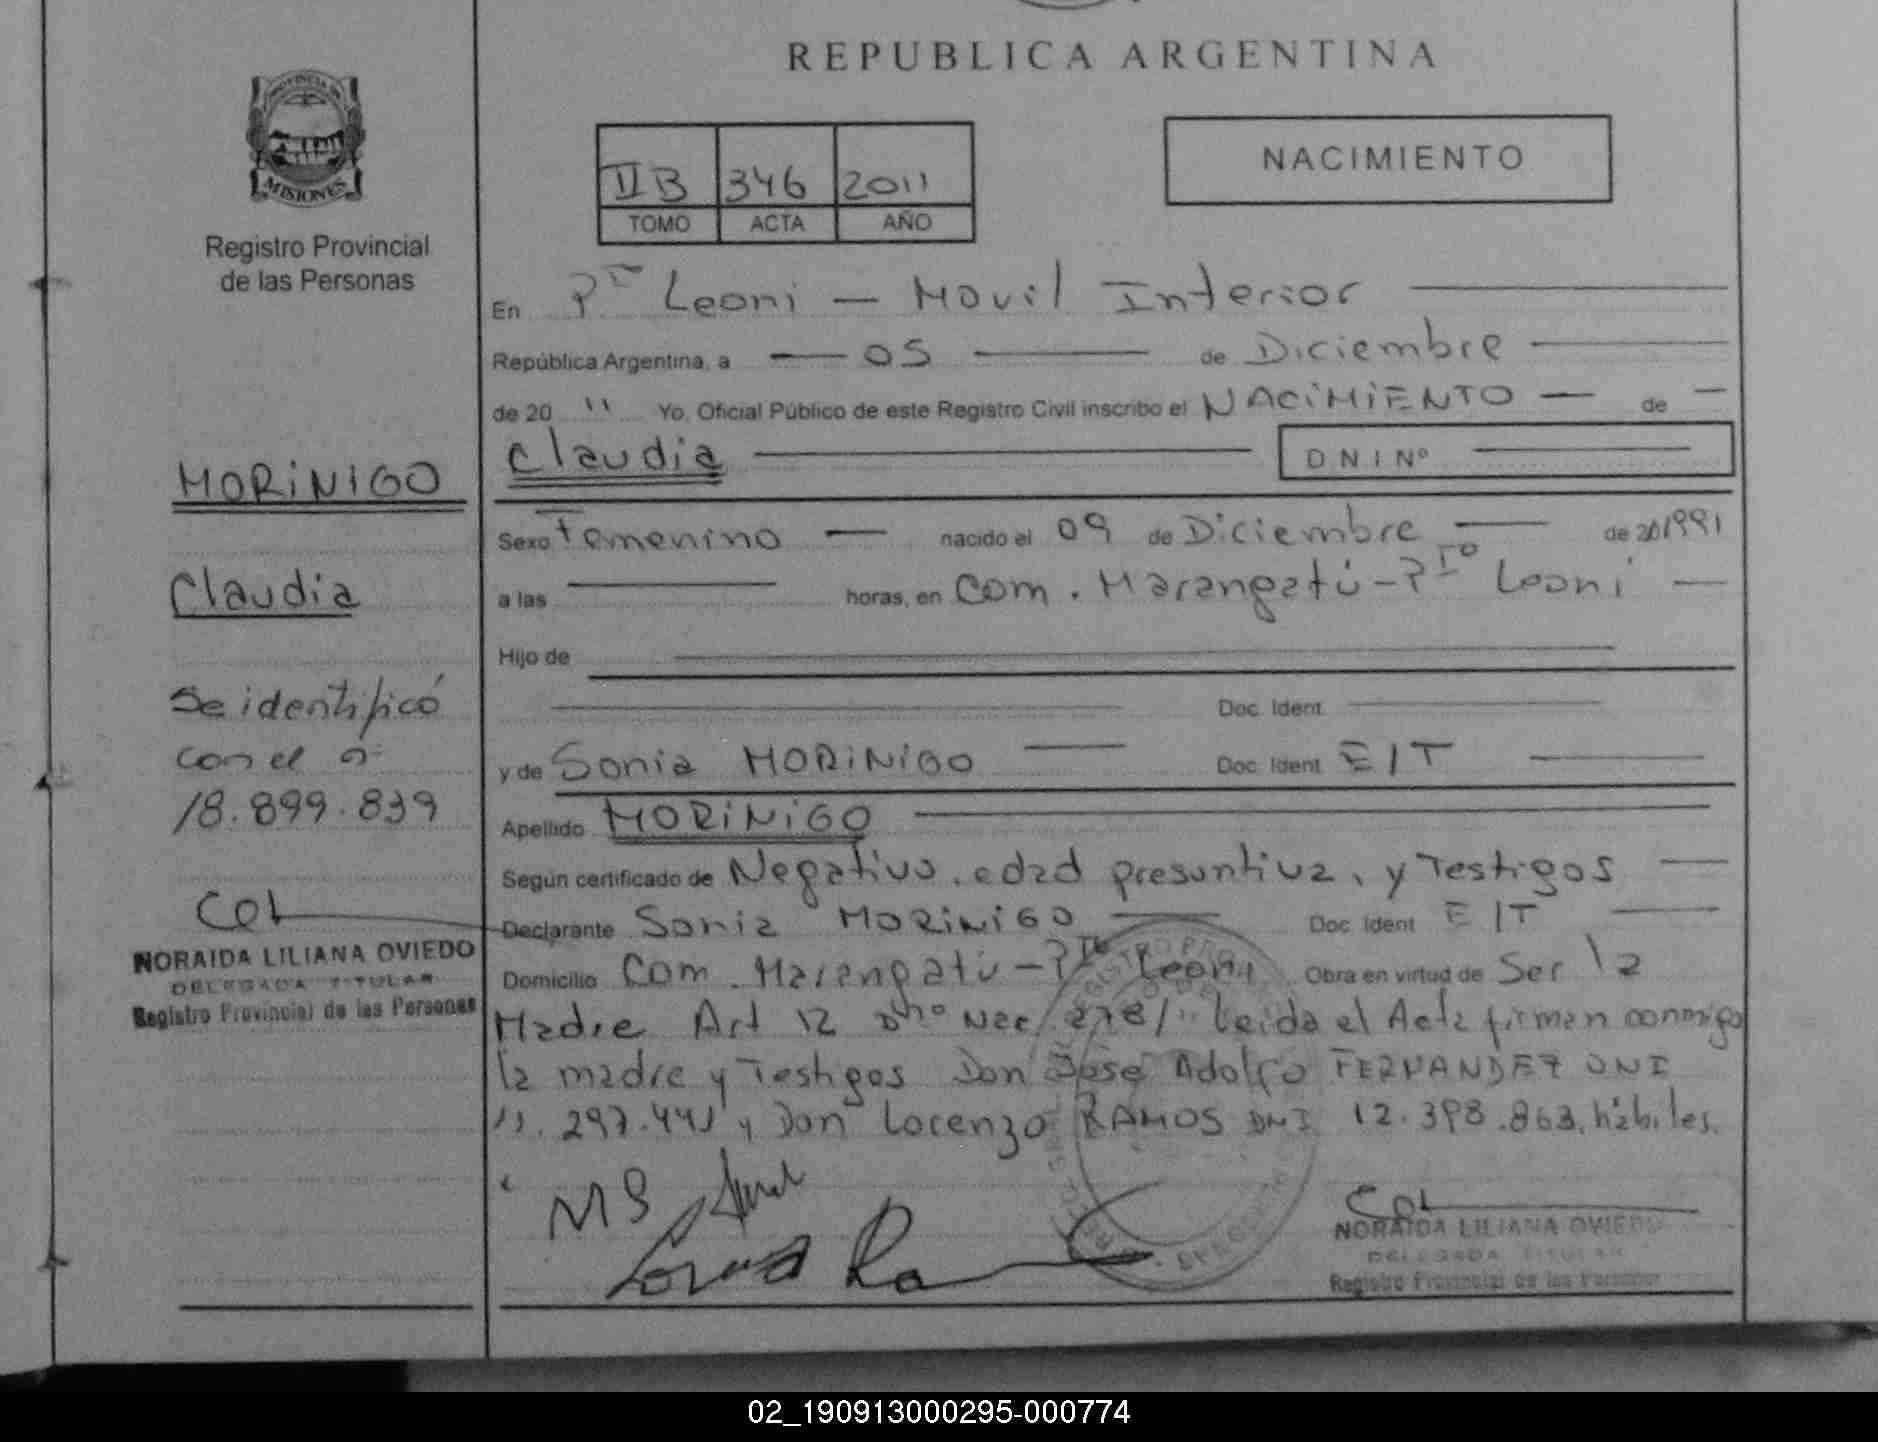 REPUBLICA ARGENTINA
PROVINCIA DE
MISIONES
Registro Provincial
de las Personas
NACIMIENTO
IIB 346 2011
TOMO ACTA AÑO
En Pto Leoni — Movil Interior
República Argentina, a 05 de Diciembre
de 20 11 Yo, Oficial Público de este Registro Civil inscribo el NACIMIENTO — de —
Claudia DNI Nº
Sexo Femenino — nacido el 09 de Diciembre — de 20 1991
a las horas, en Com. Marangatú - Pto Leoni —
Hijo de
Doc. Ident.
y de Sonia MORINIGO Doc. Ident. E/T
Apellido MORINIGO
Según certificado de Negativo, edad presuntiva, y Testigos
Declarante Sonia MORINIGO Doc. Ident. E/T
Domicilio Com. Marangatú - Pto Leoni Obra en virtud de Ser la
Madre Art 12 Dto Nac 278/11 Leida el Acta firman conmigo
la madre y Testigos Don José Adolfo FERNANDEZ DNI
11.297.441 y Don Lorenzo RAMOS DNI 12.398.863, hábiles.
MS
NORAIDA LILIANA OVIEDO
DELEGADA TITULAR
Registro Provincial de las Personas
MORINIGO
Claudia
Se identificó
con el nº
18.899.839
NORAIDA LILIANA OVIEDO
DELEGADA TITULAR
Registro Provincial de las Personas
02_190913000295-000774